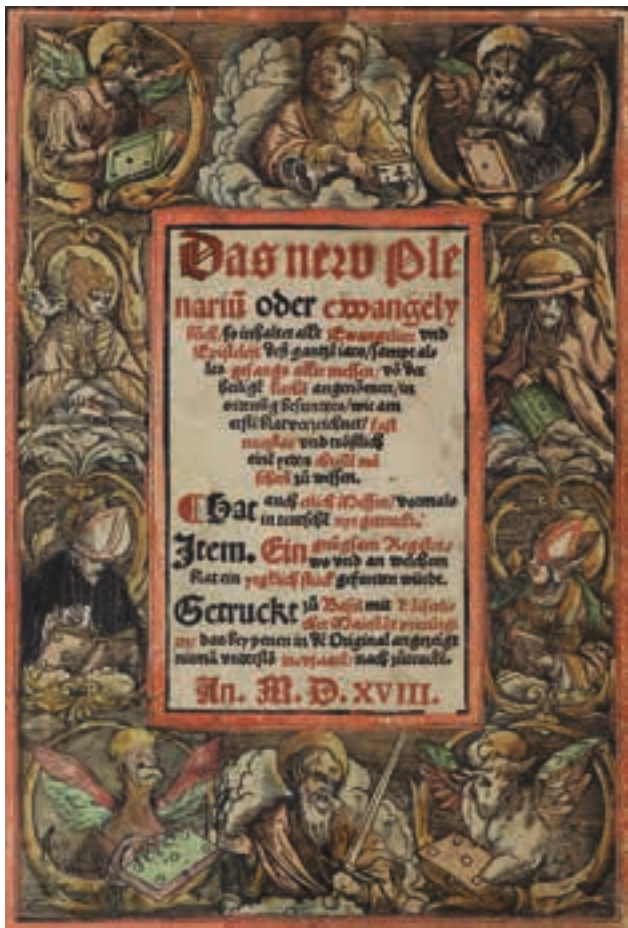 Das new Ple
nariū oder ewangely
bůch / so inhaltet alle Ewangelien vnd
Epistelen deß gantzē iars / sampt al
len gesangs aller messen / vō der
heiligē kirchē angenōmen / in
ordenūg wie am
erstē blat verzeichnet / fast
vnd trōstlich
eim yeden christē mē
schen zů wissen.
¶ Hat auch etlich Messen / vormals
in teutschē nye getruckt.
Item. Ein gnůgsam Register /
wo vnd an welchem
blat ein yegklich stuck gefunden würde.
Getruckt zů Basel mit Kaiserli
cher Maiestat
das bey penen in dē Original angezeigt
niemā vnderstā nach zůtrucke.
An. M. D. XVIII.